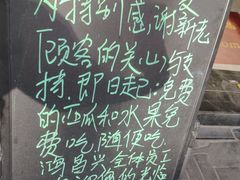 为特别感谢新老
顾客的关心与支
持.即日起.免费
的西瓜和水果免
费吃.随便吃.
鸿昌兴全体员工